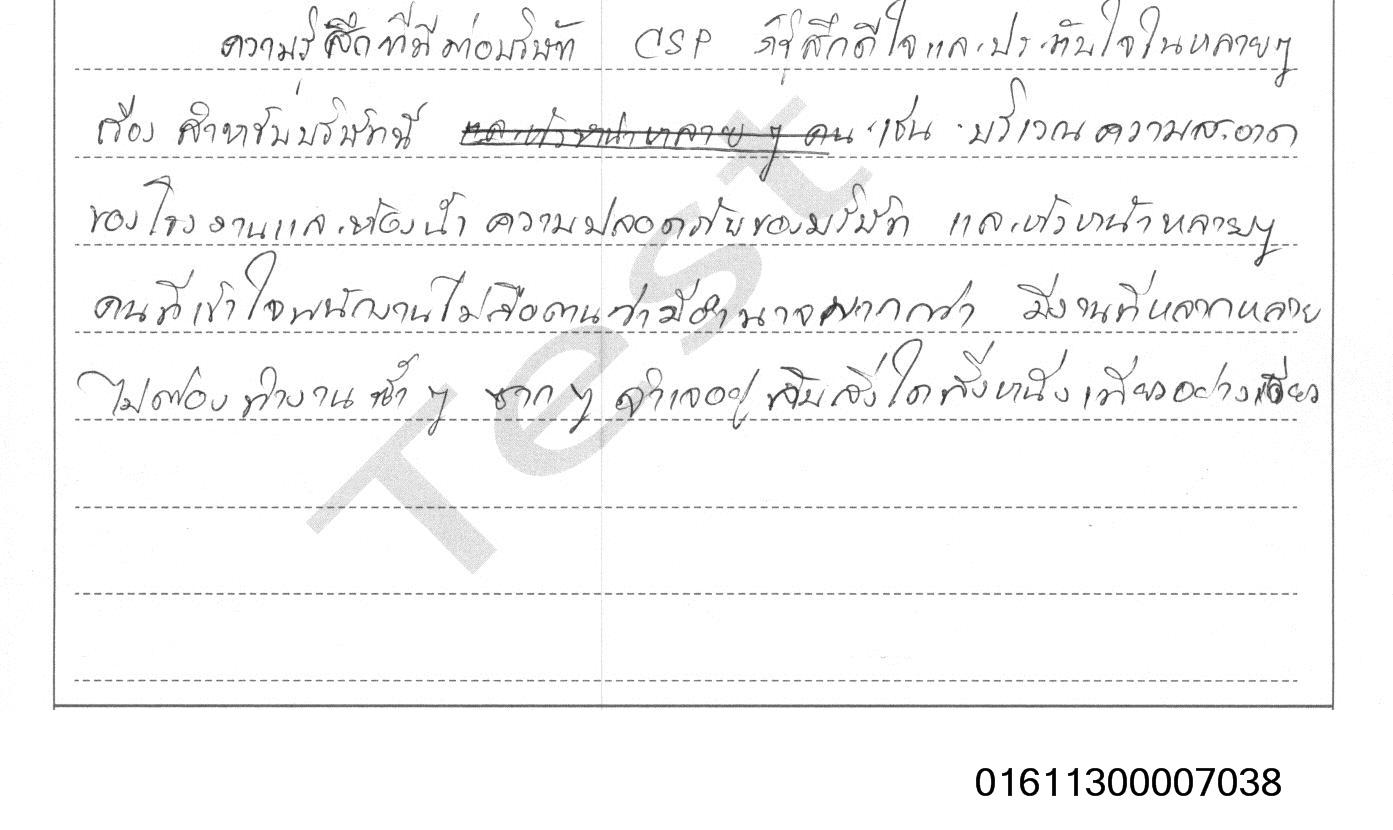 ความรู้สึกที่มีต่อบริษัท CSP ก็รู้สึกดีใจและประทับใจในหลายๆ
เรื่อง สำหรับบริษัทนี้ และหัวหน้าหลาย ๆ คน เช่น บริเวณความสะอาด
ของโรงงานและห้องน้ำ ความปลอดภัยของบริษัท และหัวหน้าหลายๆ
คนที่เข้าใจพนักงานไม่ถือตนว่ามีอำนาจมากกว่า มีงานที่หลากหลาย
ไม่ต้องทำงานซ้ำ ๆ ซาก ๆ จำเจอยู่กับสิ่งใดสิ่งหนึ่งเพียวอย่างเดียว
Test
01611300007038